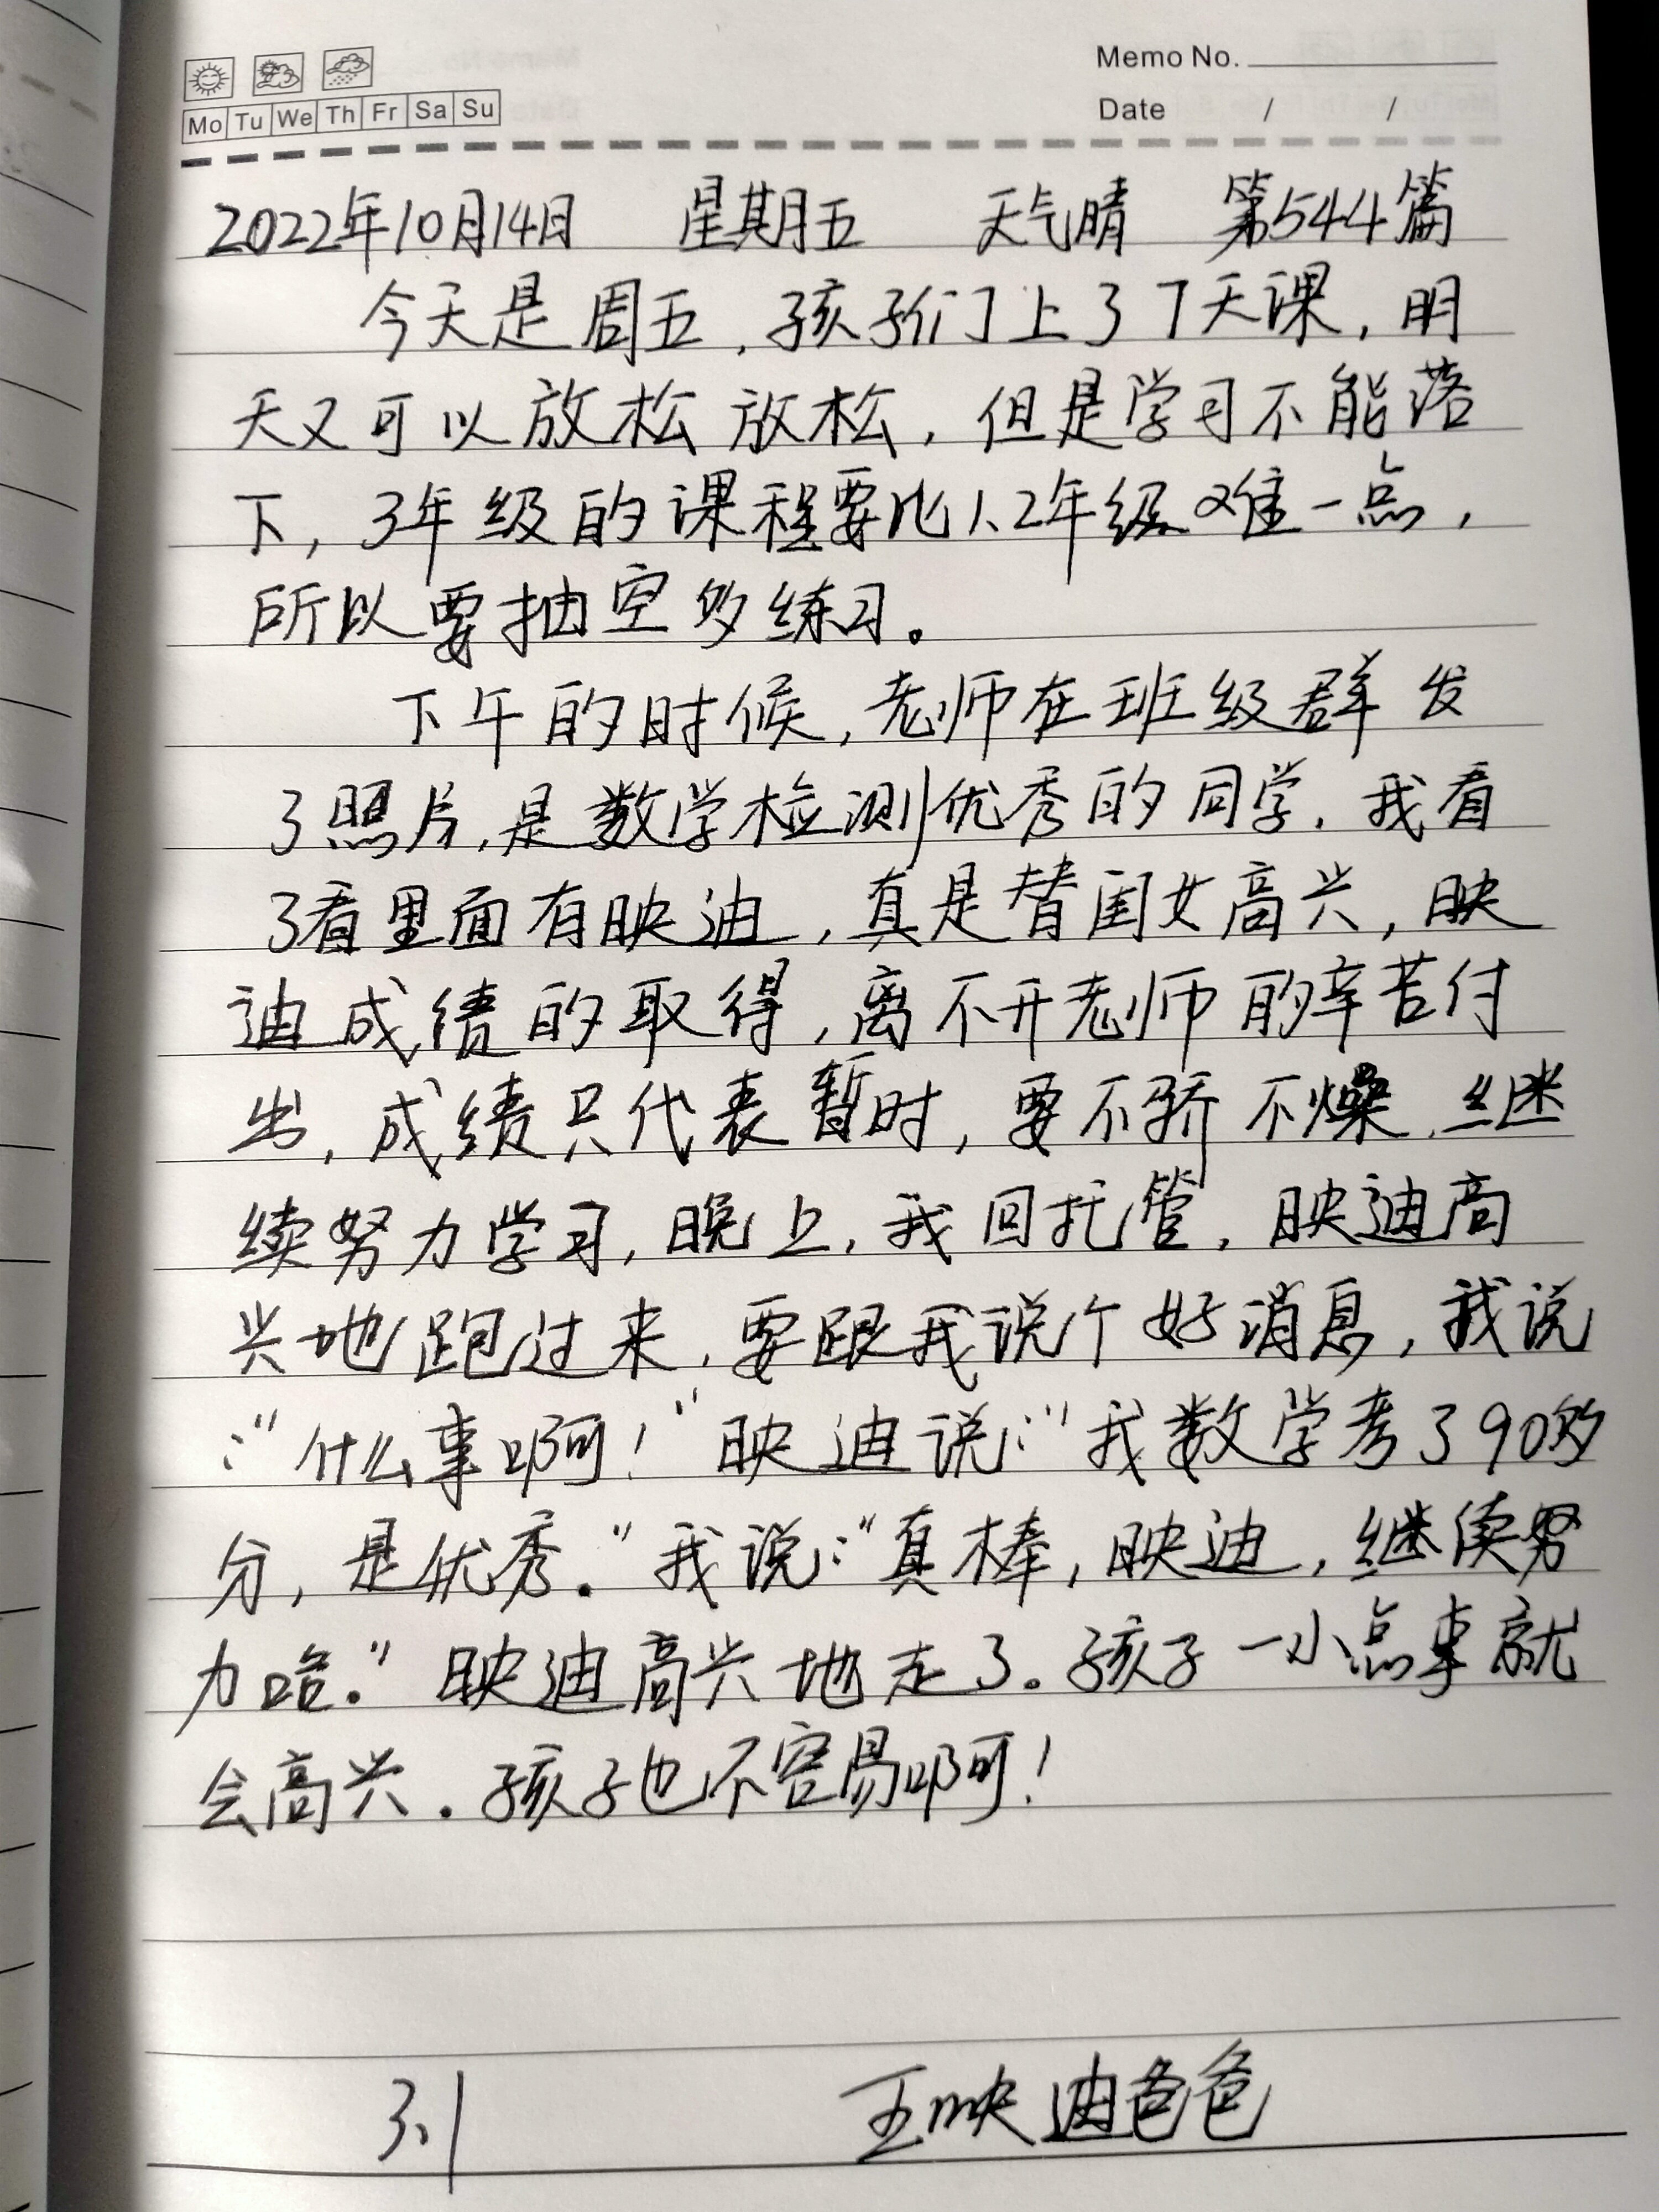 Memo No.
Mo Tu We Th Fr Sa Su
Date / /
2022年10月14日 星期五 天气晴 第544篇
今天是周五,孩子们上了7天课,明
天又可以放松放松,但是学习不能落
下,3年级的课程要比1、2年级难一点,
所以要抽空多练习。
下午的时候,老师在班级群发
了照片,是数学检测优秀的同学.我看
了看里面有映迪,真是替闺女高兴,映
迪成绩的取得,离不开老师的辛苦付
出,成绩只代表暂时,要不骄不燥.继
续努力学习,晚上,我回托管,映迪高
兴地跑过来,要跟我说个好消息,我说
:“什么事啊!”映迪说:“我数学考了90多
分,是优秀.”我说:“真棒,映迪,继续努
力哈.”映迪高兴地走了。孩子一小点事就
会高兴.孩子也不容易啊!
3.1 王映迪爸爸